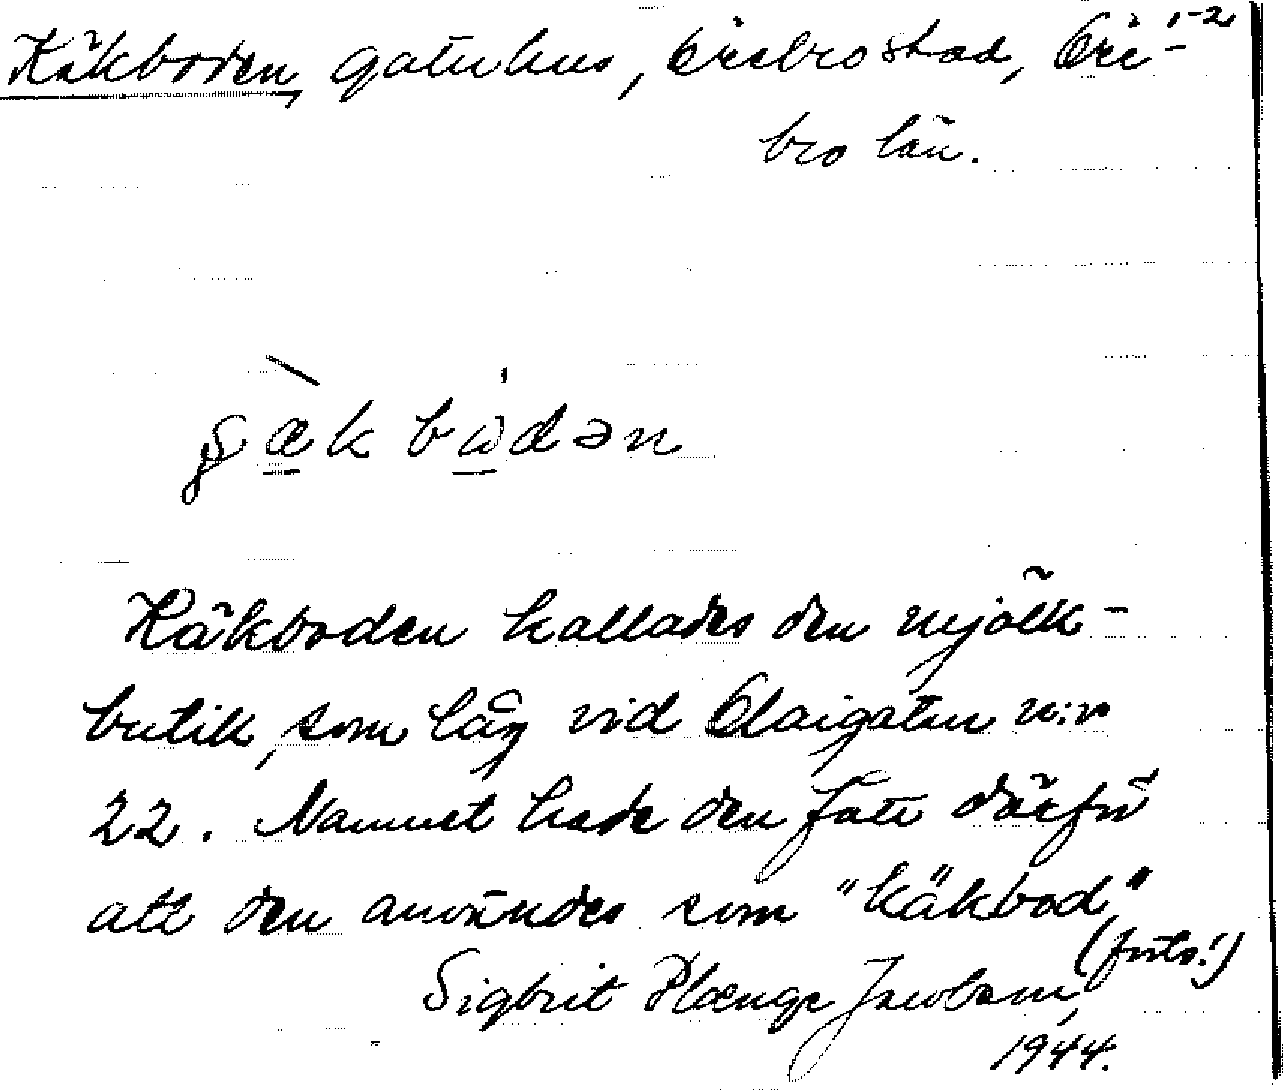 Käkboden, gatuhus, Örebro stad, Öre- 1-2
bro län.
Käkboden kallades den mjölk-
butik, som låg vid Olaigatan n:r
22. Namnet hade den fått därför
att den användes som "käkbod"
(forts.!)
Sigbrit Plænge Jacobson,
1944.